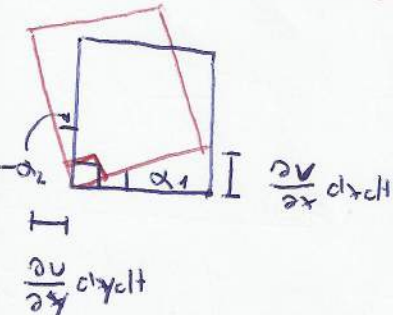 -α₂
α₁
∂v/∂x dxdt
∂u/∂y dydt